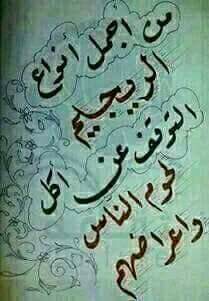 من أجمل أنواع
الريجيم
التوقف عن أكل
لحوم الناس
وأعراضهم